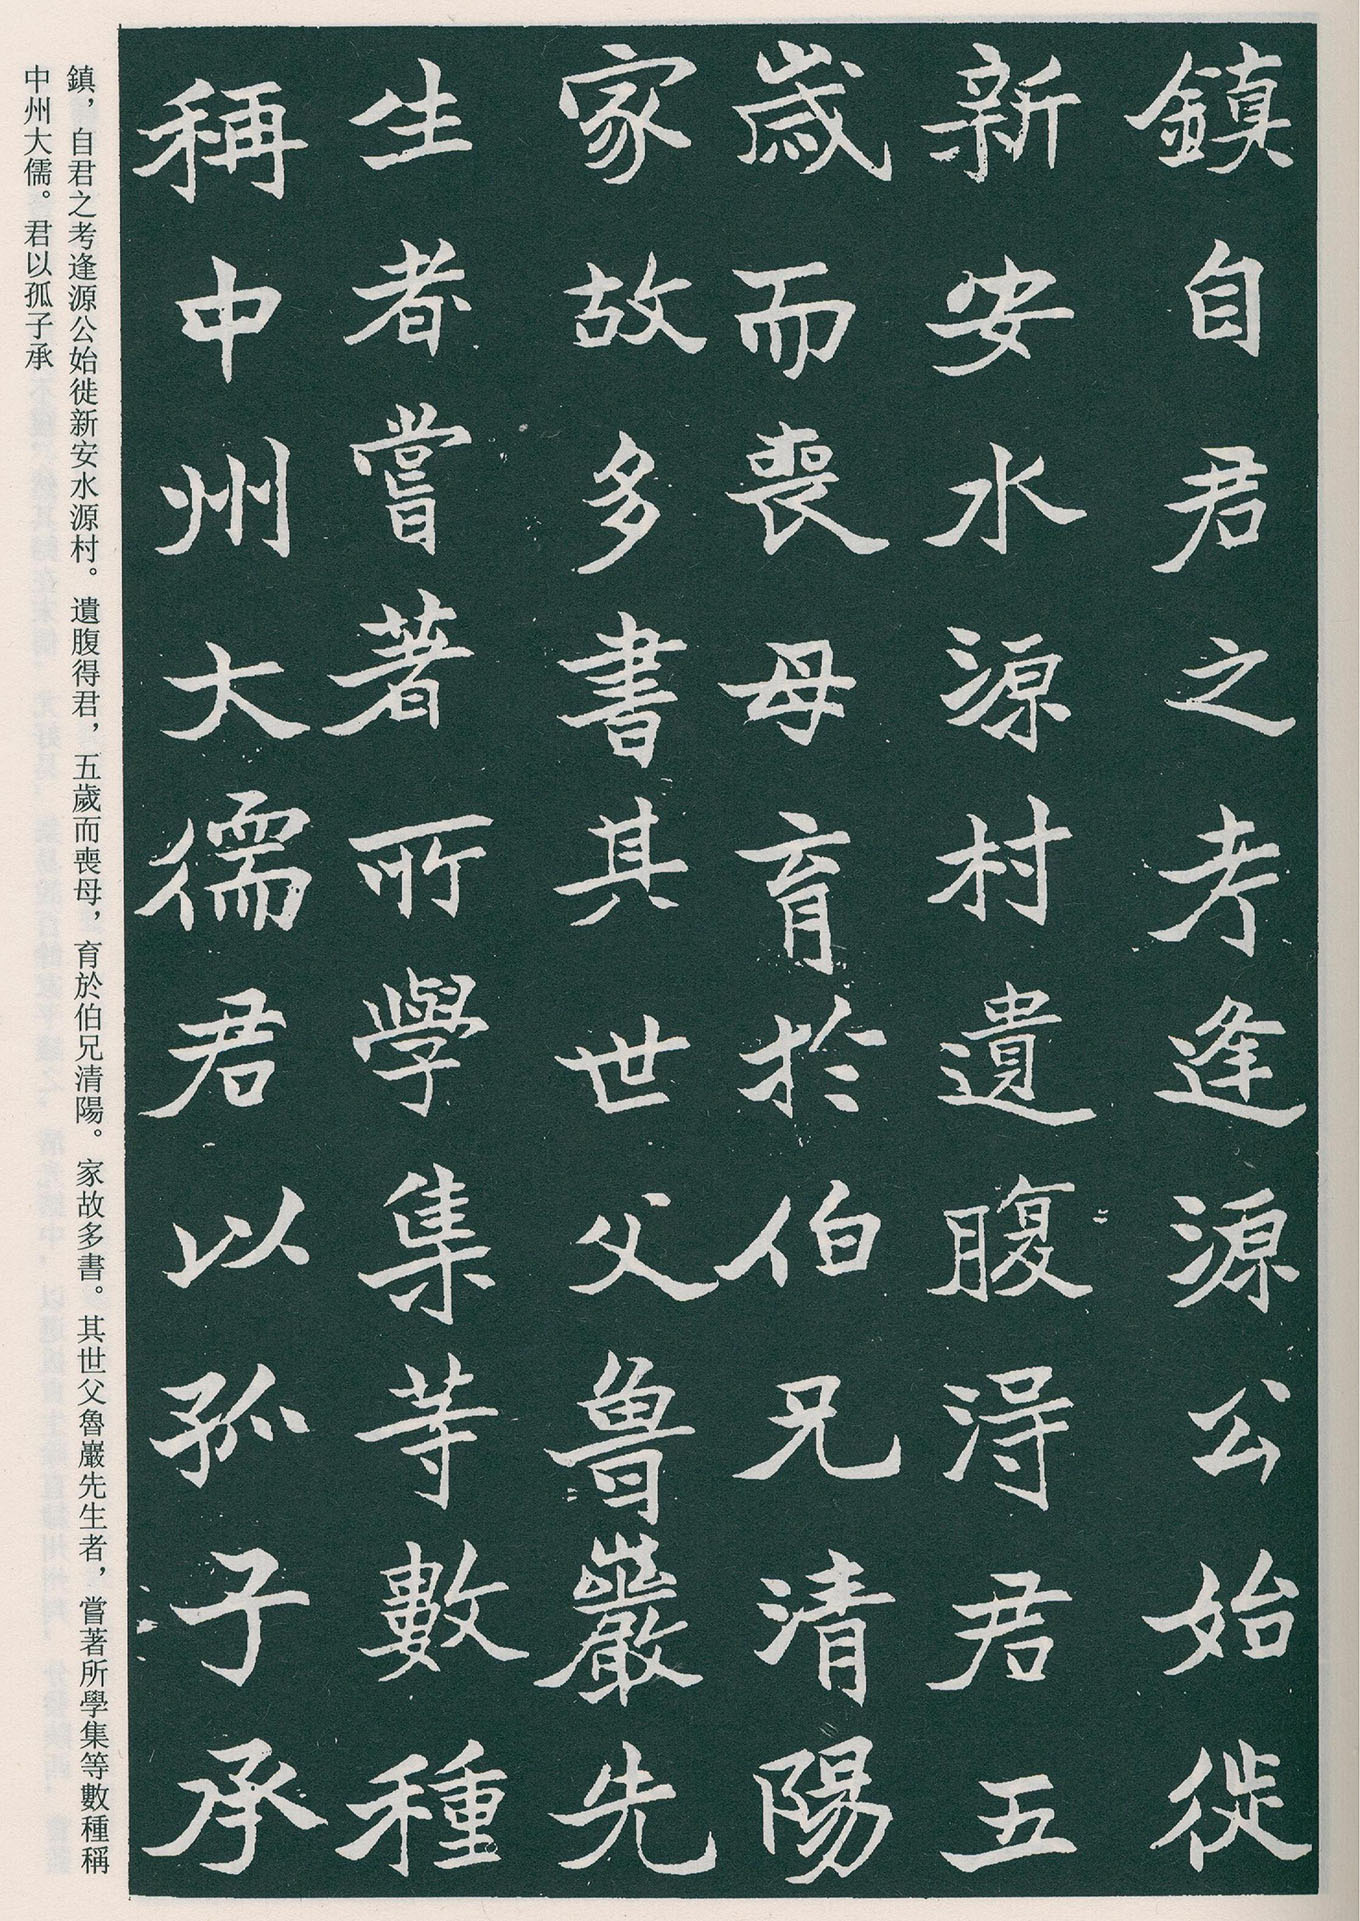 鎮自君之考逢源公始徙
新安水源村遺腹得君五
歲而喪母育於伯兄清陽
家故多書其世父魯巖先
生者嘗著所學集等數種
稱中州大儒君以孤子承
鎮，自君之考逢源公始徙新安水源村。遺腹得君，五歲而喪母，育於伯兄清陽。家故多書。其世父魯巖先生者，嘗著所學集等數種稱
中州大儒。君以孤子承